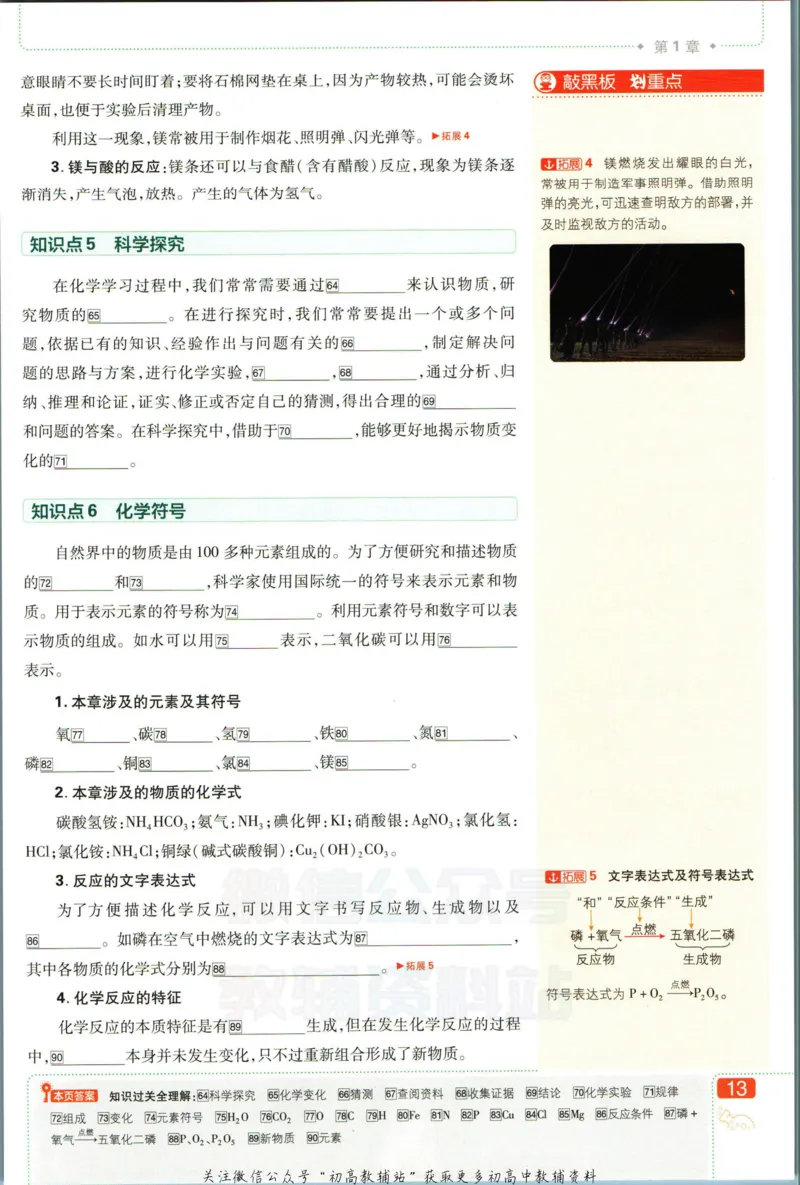 第1章
意眼睛不要长时间盯着;要将石棉网垫在桌上,因为产物较热,可能会烫坏
桌面,也便于实验后清理产物。
利用这一现象,镁常被用于制作烟花、照明弹、闪光弹等。▶拓展4
3.镁与酸的反应:镁条还可以与食醋(含有醋酸)反应,现象为镁条逐
渐消失,产生气泡,放热。产生的气体为氢气。
知识点5 科学探究
在化学学习过程中,我们常常需要通过64________来认识物质,研
究物质的65________。在进行探究时,我们常常要提出一个或多个问
题,依据已有的知识、经验作出与问题有关的66________,制定解决问
题的思路与方案,进行化学实验,67________,68________,通过分析、归
纳、推理和论证,证实、修正或否定自己的猜测,得出合理的69________
和问题的答案。在科学探究中,借助于70________,能够更好地揭示物质变
化的71________。
知识点6 化学符号
自然界中的物质是由100多种元素组成的。为了方便研究和描述物质
的72________和73________,科学家使用国际统一的符号来表示元素和物
质。用于表示元素的符号称为74________。利用元素符号和数字可以表
示物质的组成。如水可以用75________表示,二氧化碳可以用76________
表示。
1.本章涉及的元素及其符号
氧77________、碳78________、氢79________、铁80________、氮81________、
磷82________、铜83________、氯84________、镁85________。
2.本章涉及的物质的化学式
碳酸氢铵:NH₄HCO₃;氨气:NH₃;碘化钾:KI;硝酸银:AgNO₃;氯化氢:
HCl;氯化铵:NH₄Cl;铜绿(碱式碳酸铜):Cu₂(OH)₂CO₃。
3.反应的文字表达式
为了方便描述化学反应,可以用文字书写反应物、生成物以及
86________。如磷在空气中燃烧的文字表达式为87________,
其中各物质的化学式分别为88________。▶拓展5
4.化学反应的特征
化学反应的本质特征是有89________生成,但在发生化学反应的过程
中,90________本身并未发生变化,只不过重新组合形成了新物质。
敲黑板 划重点
拓展4 镁燃烧发出耀眼的白光,
常被用于制造军事照明弹。借助照明
弹的亮光,可迅速查明敌方的部署,并
及时监视敌方的活动。
拓展5 文字表达式及符号表达式
“和”“反应条件”“生成”
磷+氧气 点燃→ 五氧化二磷
反应物 生成物
符号表达式为P+O₂ 点燃→ P₂O₅。
微信公众号
教辅资料站
本页答案 知识过关全理解:64科学探究 65化学变化 66猜测 67查阅资料 68收集证据 69结论 70化学实验 71规律
72组成 73变化 74元素符号 75H₂O 76CO₂ 77O 78C 79H 80Fe 81N 82P 83Cu 84Cl 85Mg 86反应条件 87磷+
氧气 点燃→ 五氧化二磷 88P、O₂、P₂O₅ 89新物质 90元素
13
关注微信公众号“初高教辅站”获取更多初高中教辅资料